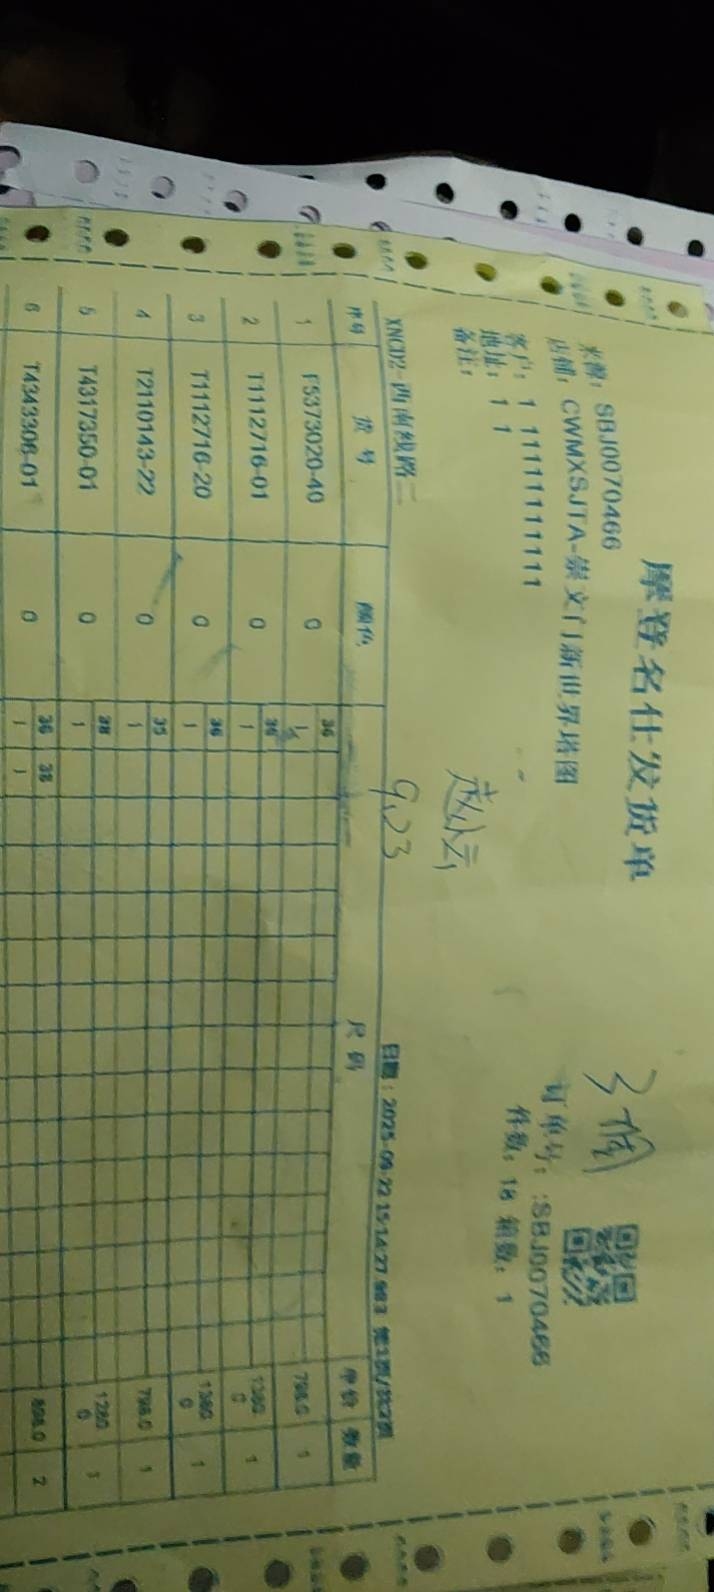 摩登名仕发货单
3箱
来源: SBJ0070466
订单号: :SBJ0070466
店铺: CWMXSJTA-崇文门新世界塔图
件数: 18 箱数: 1
客户: 1 11111111111
地址: 1 1
备注:
赵小云
9.23
XNCD2-西南线路二
日期: 2025-09-22 15:14:27
序号 货号 颜色 尺码 单价 数量
36
1 F5373020-40 0 1 798.0 1
36
2 T1112716-01 0 1 1380.0 1
36
3 T1112716-20 0 1 1380.0 1
35
4 T2110143-22 0 1 798.0 1
38
5 T4317350-01 0 1 1280.0 1
36 38
6 T4343306-01 0 1 1 898.0 2